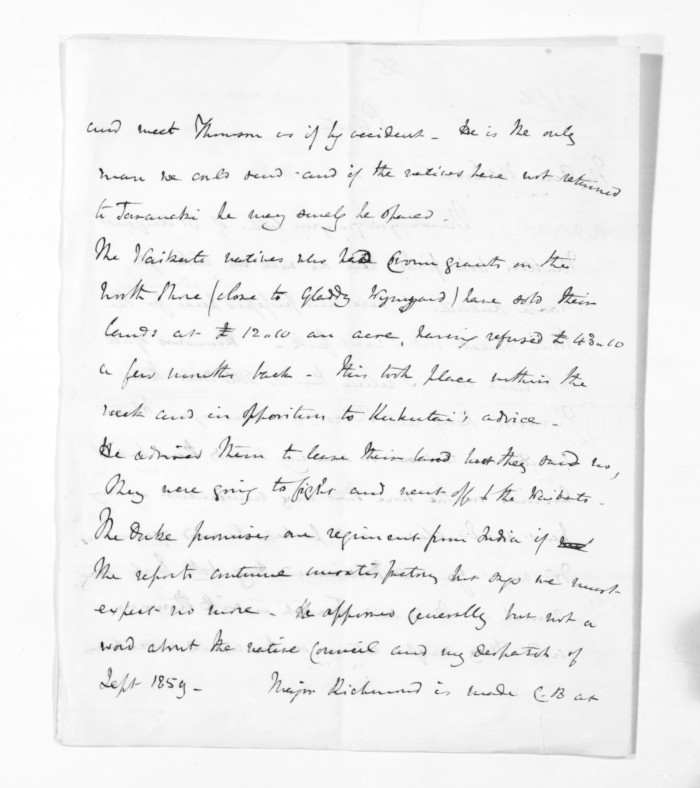 and meet Thomson as if by accident - He is the only
man we could send - and if the natives have not returned
to Taranaki he may surely be spared.
The Waikato natives who had Crown grants on the
North Shore (close to Gladdy Wynyard) have sold their
lands at £12.00 an acre, having refused £43.00
a few months back - This took place within the
week and in opposition to Kukutai's advice -
He advised them to lease their land but they said no,
They were going to fight and went off to the Waikato -
The Duke promises one regiment from India if
the reports continue unsatisfactory but says we must
expect no more - He approves generally but not a
word about the native Council and my despatch of
Sept 1859 - Major Richmond is made C-B at